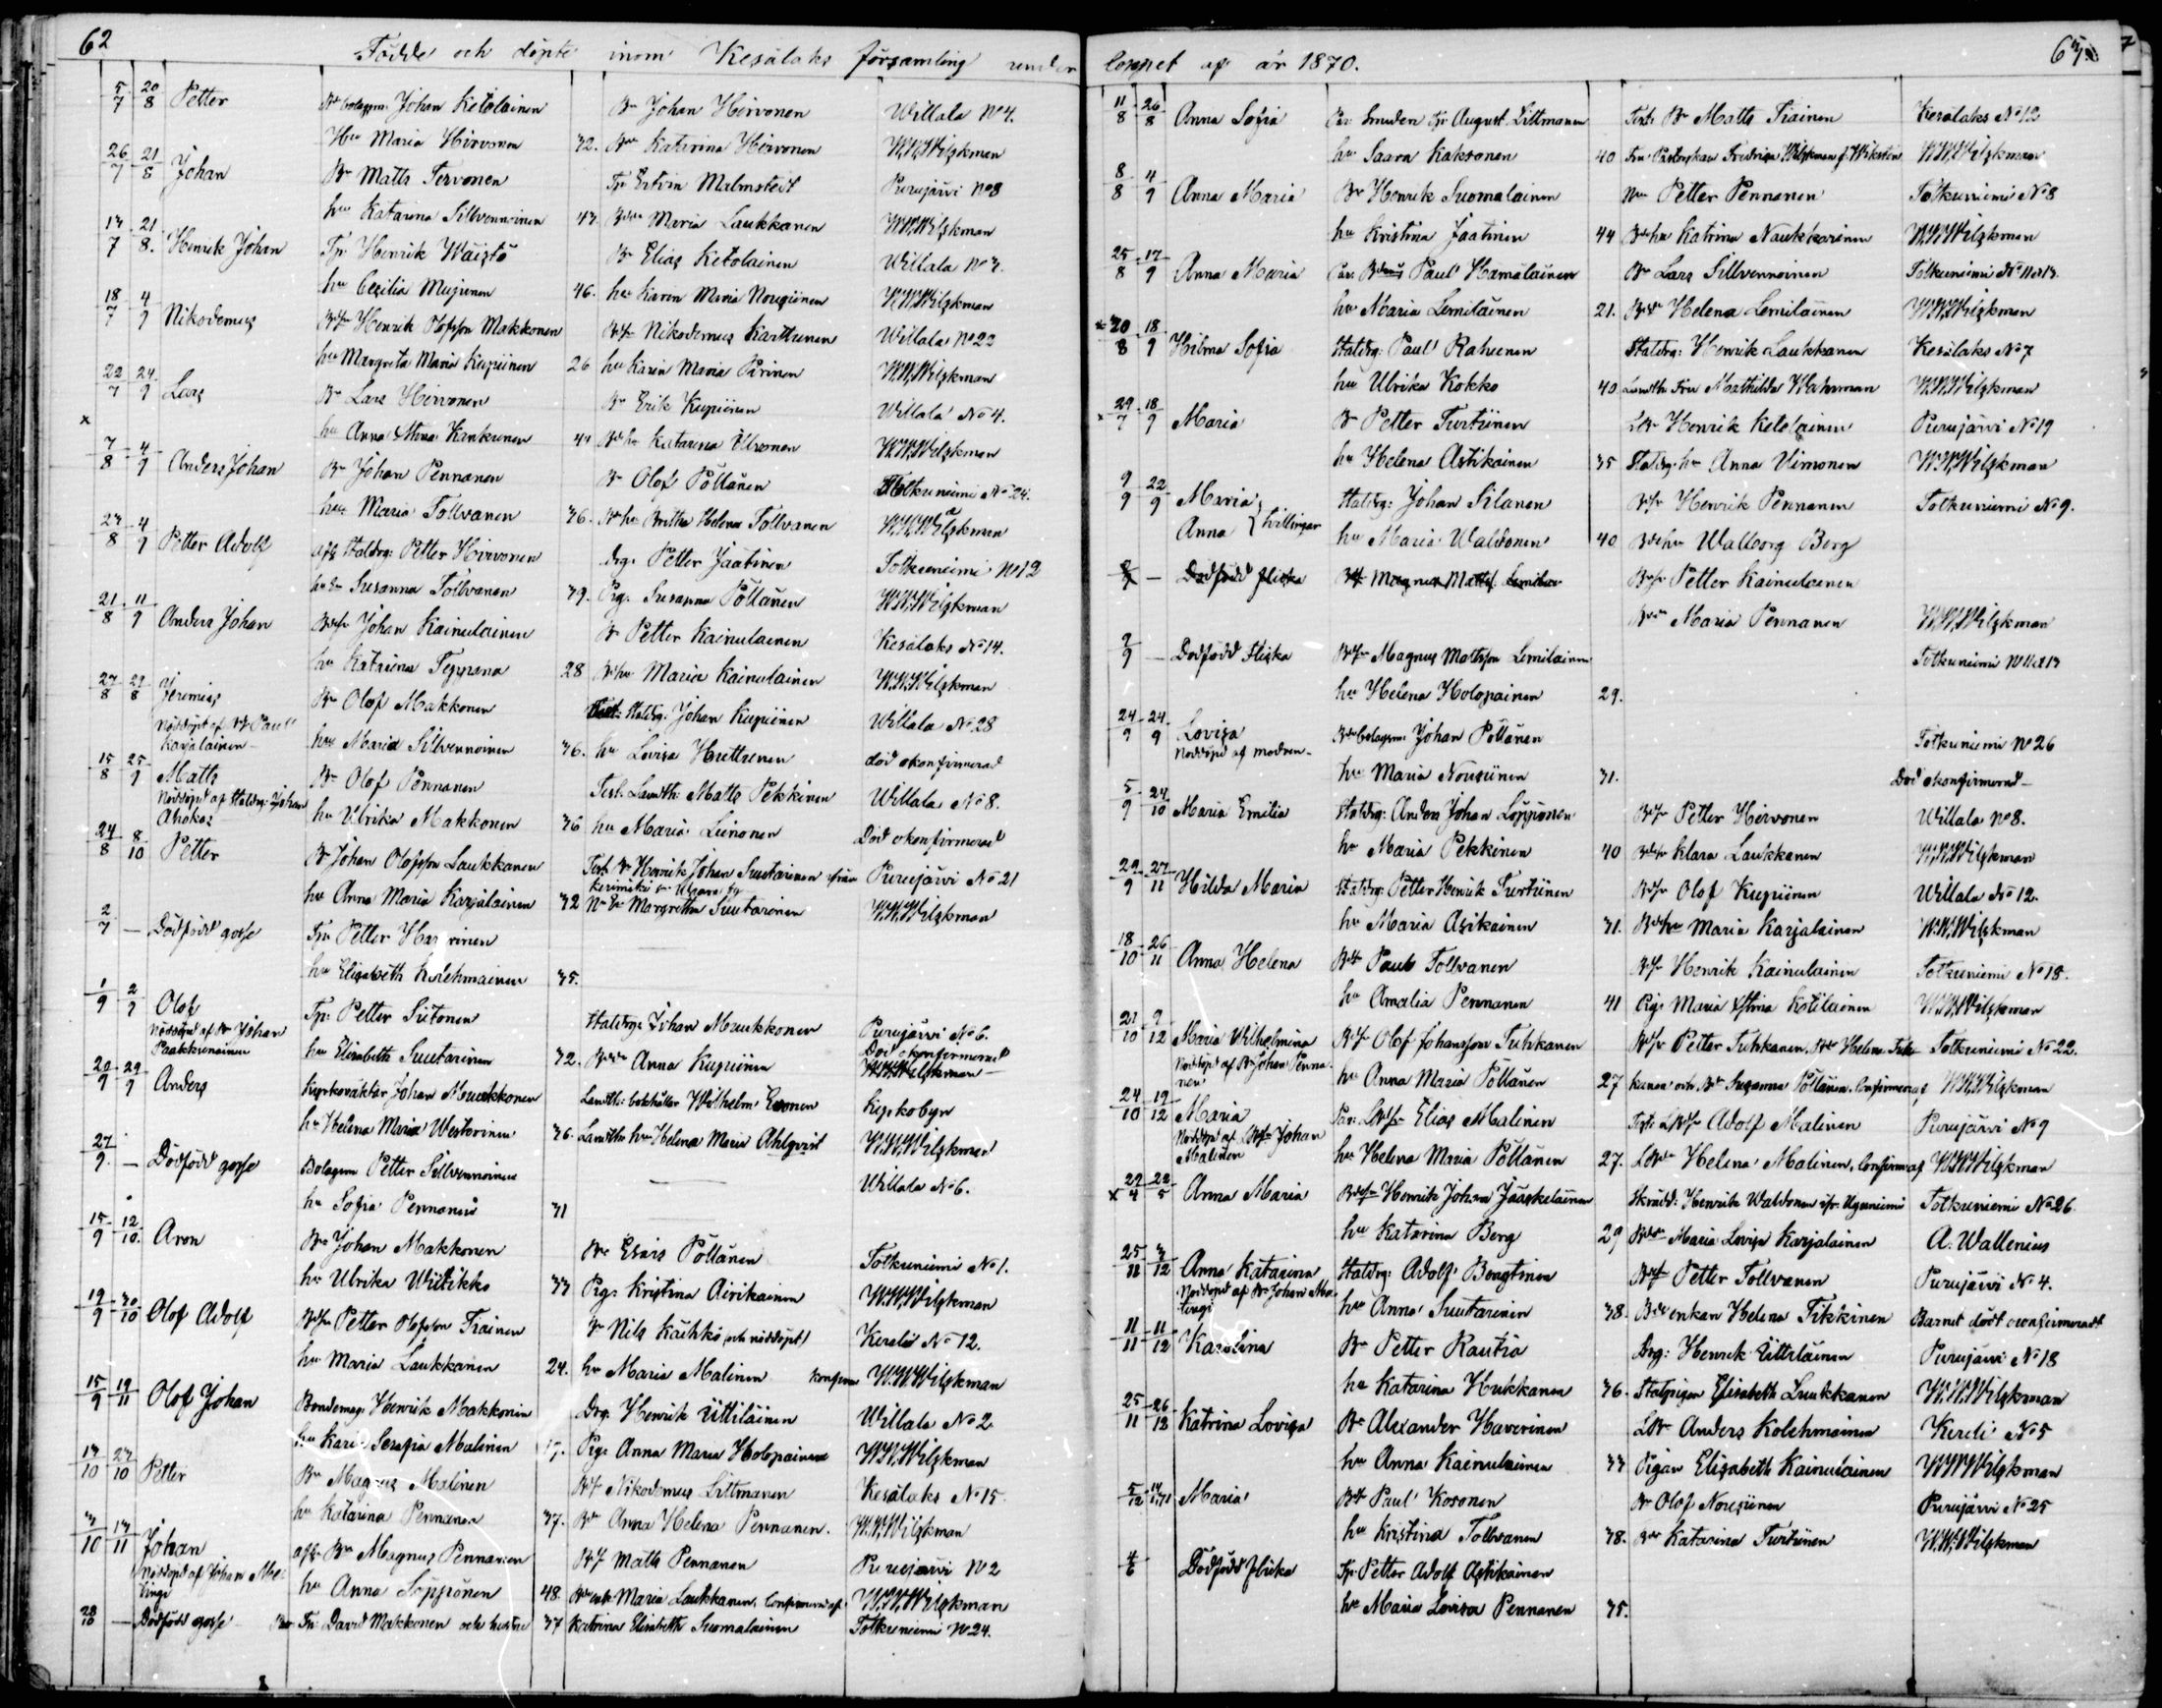 62
Födde och döpte inom Kesälaks församling under
5/7 20/8 Petter Johan Ketolainen Bn Johan Hirvonen Willala No 4.
Hu Maria Hirvonen 32. Katarina Hirvonen W.W.Wilskman
26/7 21/8 Johan Bn Matts Tervonen Malmstedt Purujärvi No 8
hu Katarina Silvennoinen 43. Maria Laukkanen W.W.Wilskman
13/7 21/8. Henrik Johan Henrik Wäistö Bn Elias Ketolainen Willala No 3.
hu Cecilia Mujunen 46. hu Karin Maria Nousiinen W.W.Wilskman
18/7 4/9 Nikodemus Henrik Olofsson Makkonen Nikodemus Karttunen Willala No 22
hu Margreta Maria Kupiinen 26 hu Karin Maria Pirinen W.W.Wilskman
22/7 24/9 Lars Bn Lars Hirvonen Bn Erik Kupiinen Willala No 4.
x hu Anna Stina Kankunen Katarina W.W.Wilskman
7/8 4/9 Anders Johan Bn Johan Pennanen Bn Olof Pöllänen Totkuniemi No 24.
hu Maria Tollvanen 36. Britha Helena Tollvanen W.W.Wilskman
23/8 4/9 Petter Adolf Petter Hirvonen Drg. Petter Jaatinen Totkuniemi No 12
Susanna Tollvanen 39. Pig. Susanna Pöllänen W.W.Wilskman
21/8 11/9 Anders Johan Johan Kainulainen Bn Petter Kainulainen Kesälaks No 14.
hu Katrina Tepponen 28 Maria Kainulainen W.W.Wilskman
27/8 29/8 Jeremias Bn Olof Makkonen Johan Kupiinen Willala No 28
Nöddöpt af Paul
Karjalainen hu Maria Silvennoinen 36. hu Lovisa Huttunen död okonfirmerad
15/8 25/9 Matts Bn Olof Pennanen Test. Matts Pekkinen Willala No 8.
Nöddöpt af Staldrg: Johan
Ahokas hu Ulrika Makkonen 36 hu Maria Leinonen Död okonfirmerad
24/8 8/10 Petter Bn Johan Olofsson Laukkanen Test. Henrik Johan Suutarinen ifrån Purujärvi No 21
hu Anna Maria Karjalainen 32 Margretha Suutarinen W.W.Wilskman
2/7 — Dödfödd gosse Petter
hu Elisabeth Kolehmainen 35.
1/9 2/9 Olof Petter Siitonen Staldrg: Johan Muukkonen Purujärvi No 6.
Nöddöpt af Bn Johan
hu Elisabeth Suutarinen 32. Anna Kupiinen Död okonfirmerad
20/9 29/9 Anders Kyrkoväktar Johan Muukkonen Wilhelm Kyrkobyn
hu Helena Maria Westerinen 36. hu Helena Maria Ahlqvist W.W.Wilskman
27/9. — Dödfödd gosse Bolagsm Petter Silvennoinen Willala No 6.
hu Sofia Pennanen 31
15/9 12/10. Aron Bn Johan Makkonen Bn Esaias Pöllänen Totkuniemi No 1.
hu Ulrika Wiitikko 33 Pig. Kristina Airikainen W.W.Wilskman
19/9 30/10 Olof Adolf Petter Olofsson Tiainen Bn Nils (och nöddöpt) Kerelä No 12.
hu Maria Laukkanen 24. hu Maria Malinen konfirm W.W.Wilskman
15/9 19/11 Olof Johan Bondemag Henrik Makkonen Drg. Henrik Uittiläinen Willala No 2
hu Karin Serafia Malinen Pig. Anna Maria Holopainen W.W.Wilskman
13/10 23/10 Petter Bn Magnus Malinen Nikodemus Littmanen Kesälaks No 15.
hu Katarina Pennanen 37. Anna Helena Pennanen. W.W.Wilskman
3/10 13/11 Johan Bn Magnus Pennanen Matts Pennanen Purujärvi No 2
Nöddöpt af Johan
hu Anna Löppönen 48. Maria Laukkanen. Confirmerad af W.W.Wilskman
28/10 — Dödfödd gosse David Makkonen och hustru 37 Katrina Elisabeth Suomalainen Totkuniemi No 24.
loppet af år 1870.
63.
11/8 26/8 Anna Sofia August Littmanen Test. Bn Matts Tiainen Kesälaks No 12
hu Saara Kaksonen 40 Fredrica Wilskman f. Wikström W.W.Wilskman
8/8 4/9 Anna Maria Bn Henrik Suomalainen Petter Pennanen Totkuniemi No 8
hu Kristina Jaatinen 44 Katrina Naukkarinen W.W.Wilskman
25/8 17/9 Anna Maria Paul Hämäläinen Bn Lars Silvennoinen Totkuniemi No 11 & 13.
hu Maria Lemiläinen 21. Helena Lemiläinen W.W.Wilskman
x 20/8 18/9 Hilma Sofia Staldrg: Paul Rahunen Staldrg: Henrik Laukkanen Kesälaks No 7
hu Ulrika Kokko 40 Fru Mathilda Wahrman W.W.Wilskman
x 29/7 18/9 Maria Bn Petter Turtiinen Henrik Ketolainen Purujärvi No 19
hu Helena Asikainen 35 Staldrg. hu Anna Uimonen W.W.Wilskman
9/9 22/9 Maria Anna } tvillingar Staldrg: Johan Silanen Henrik Pennanen Totkuniemi No 9.
hu Maria Waldonen 40 Walborg Berg
— Dödfödd flicka Magnus Matts Petter Kainulainen
Maria Pennanen W.W.Wilskman
2/9 — Dödfödd flicka Magnus Matsson Lemiläinen Totkuniemi No 11 & 13
hu Helena Holopainen 29.
24/9 24/9 Lovisa Johan Pöllänen Totkuniemi No 26
Nöddöpt af modren
hu Maria Nousiinen 31. Död okonfirmerad
5/9 24/10 Maria Emilia Staldrg: Anders Johan Löppönen Petter Hirvonen Willala No 8.
hu Maria Pekkinen 40 Klara Laukkanen W.W.Wilskman
29/9 27/11 Hilda Maria Staldrg: Petter Henrik Turtiinen Olof Kupiinen Willala No 12.
hu Maria Asikainen 31. Maria Karjalainen W.W.Wilskman
18/10 26/11 Anna Helena Paul Tollvanen Henrik Kainulainen Totkuniemi No 18.
hu Amalia Pennanen 41 Pig. Maria Stina Kotilainen W.W.Wilskman
21/10 9/12 Maria Wilhelmina Olof Johansson Tuhkanen Petter Tuhkanen, Helena Totkuniemi No 22.
Nöddöpt af Bn Johan Pennanen
hu Anna Maria Pöllänen 27 och Susanna Pöllänen. Confirmerad af W.W.Wilskman
24/10 19/12 Maria Elias Malinen Adolf Malinen Purujärvi No 9
Nöddöpt af Johan
Malinen hu Helena Maria Pöllänen 27. Helena Malinen, Confirm af W.W.Wilskman
x 29/4 22/5 Anna Maria Henrik Johan Jääskeläinen Skrädd: Henrik Waldonen ifr. Uguniemi Totkuniemi No 26.
hu Katarina Berg 29 Maria Lovisa Karjalainen A. Wallenius
25/11 3/12 Anna Katarina Staldrg: Adolf Petter Tollvanen Purujärvi No 4.
Nöddöpt af Bn Johan
hu Anna Suutarinen 38. enkan Helena Tikkinen Barnet dödt okonfirmeradt
11/11 11/12 Karolina Bn Petter Rautio Drg: Henrik Uittiläinen Purujärvi No 18
hu Katarina Hukkanen 36. Stalpigan Elisabeth Luukkanen W.W.Wilskman
25/11 26/12 Katrina Lovisa Bn Alexander Haverinen Anders Kolehmainen Kerelä No 5
hu Anna Kainulainen 33 Pigan Elisabeth Kainulainen W.W.Wilskman
5/12 Maria Paul Kosonen Bn Olof Nousiinen Purujärvi No 25
hu Kristina Tollvanen 38. Katarina Turtiinen W.W.Wilskman
4/6 Dödfödd flicka Petter Adolf Asikainen
hu Maria Lovisa Pennanen 35.